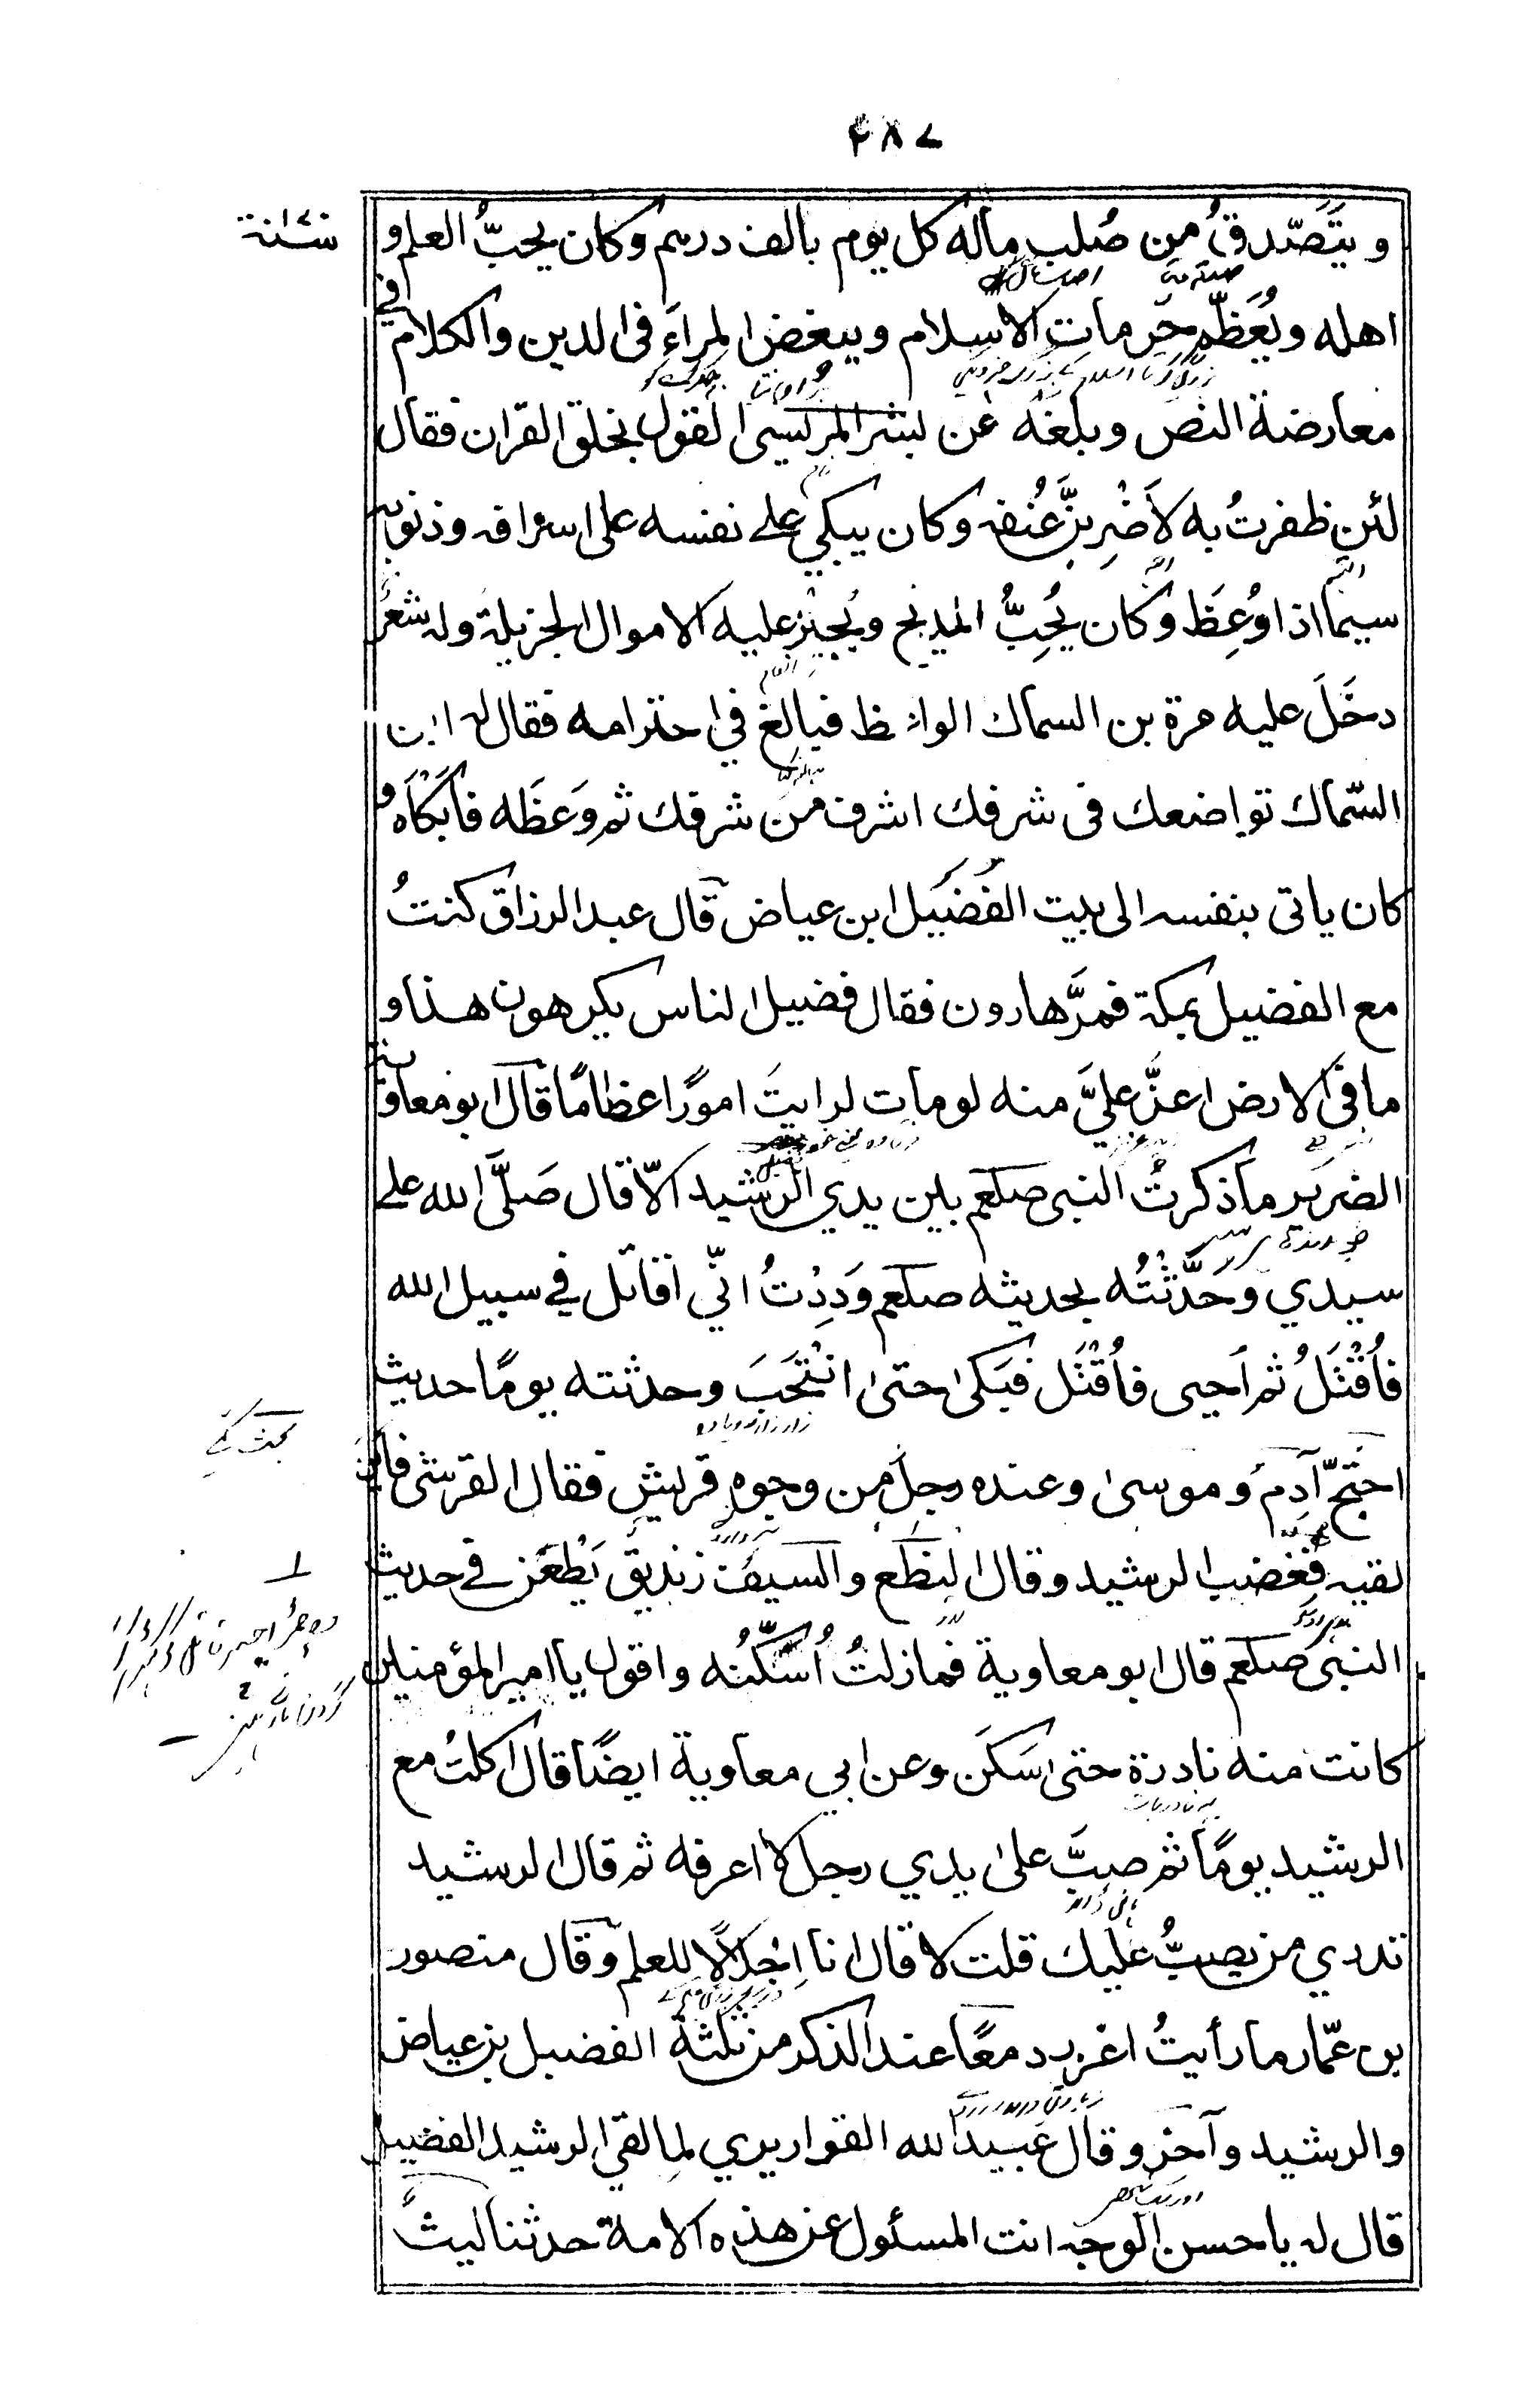 ۲۸۷
سنة ۱۷۰
و يتَصَّدقُ من صُلب ماله كل يوم بالف درهم وكان يحبُّ العلم و
اهله ويُعَظِّم حرمات الاسلام ويبغض المِراءَ فى الدين والكلام في
معارضة النص وبلغه عن بشر المريسى القول بخلق القران فقال
لئن ظفرتُ به لاَضْرِبنَّ عُنقه وكان يبكي على نفسه على اسرافه وذنوبه
سيما اذا وُعِظَ وكان يُحِبُّ المديح ويُجيز عليه الاموال الجزيلة وله شعرٌ
دخَلَ عليه مرة بن السماك الواعظ فبالغ في احترامه فقال له ابن
السّماك تواضعك فى شرفك اشرف من شرفك ثم وَعَظَه فاَبْكَاَه و
كان ياتى بنفسه الى بيت الفُضَيل ابن عياض قال عبد الرزاق كنتُ
مع الفضيل بمكة فمرَّ هارون فقال فضيل الناس يكرهون هذا و
ما فى الارض اعزَّ عليَّ منه لو مات لرايتَ امورًا عظامًا قال ابو معاوية
الضرير ما ذكرتُ النبى صلعم بين يدي الرشيد الّا قال صَلَّى الله على
سيدي وحَدَّثْتُه بحديثه صلعم وَدِدْتُ انّي اقاتل في سبيل الله
فاُقْتَلُ ثم اَحيى فاُقْتَل فبَكى حتى انْتَحَبَ وحدثته يومًا حديث
احتَجَّ آدم و موسى وعنده رجل من وجوه قريش فقال القرشى فاين
لقيه فغضب الرشيد وقال النطع والسيف زنديق يَطْعَن في حديث
النبى صلعم قال ابو معاوية فما زلتُ اُسَكِّنُه واقول يا امير المؤمنين
كانت منه نادرة حتى سَكَنَ وعن ابي معاوية ايضًا قال اكلتُ مع
الرشيد يومًا ثم صبَّ على يدي رجل لا اعرفه ثم قال الرشيد
تدري من يصبُّ عليك قلت لا قال انا اِجْلالًا للعلم وقال منصور
بن عمّار ما رأيتُ اغزر دمعًا عند الذكر من ثلثة الفضيل بن عياض
والرشيد وآخر وقال عُبيد الله القواريري لما لقي الرشيد الفضيل
قال له يا حسن الوجه انت المسئول عن هذه الامة حدثنا ليثٌ